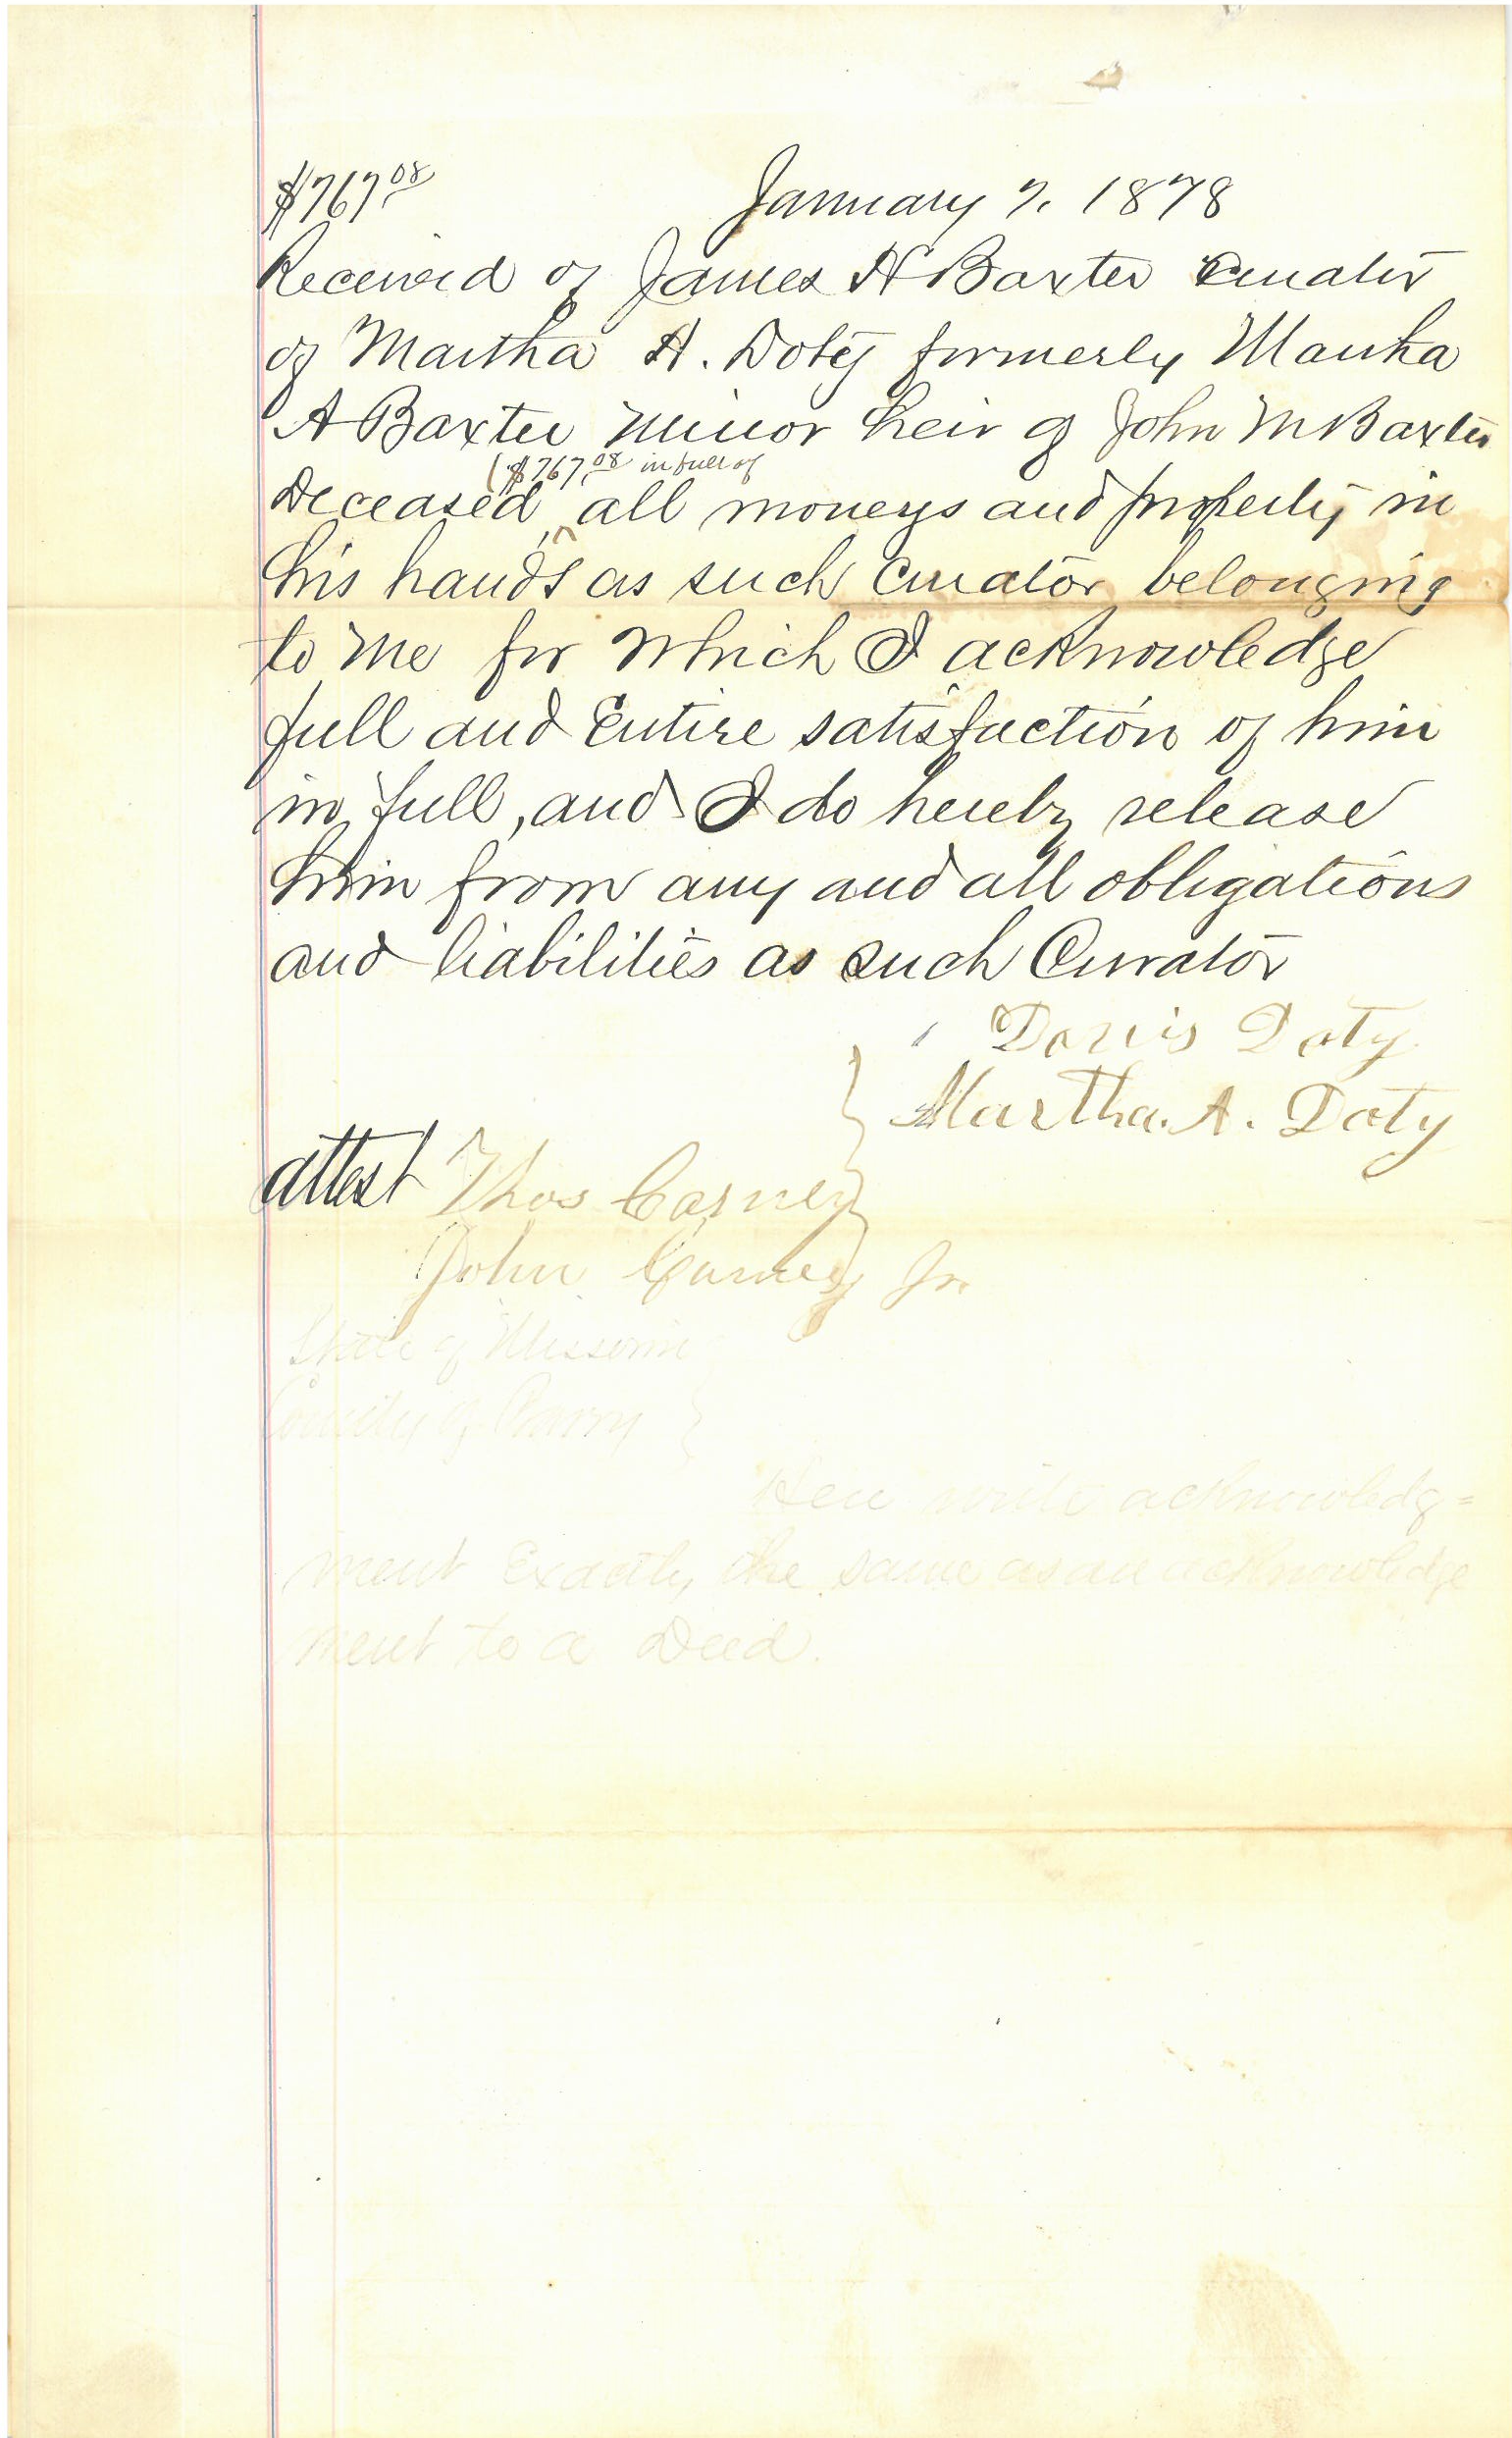 $767.08 January 7, 1878
Received of James H Baxter Curator
of Martha A. Doty formerly Martha
A Baxter minor heir of John M Baxter
($767.08 in full of
Deceased, all moneys and property in
his hands as such Curator belonging
to me for which I acknowledge
full and Entire satisfaction of him
in full, and I do hereby release
him from any and all obligations
and liabilities as such Curator
Doty
Martha. A. Doty
attest Thos Carney
John Carney Jr.
State of Missouri
County of Barry
Here write acknowledg=
ment Exactly the same as an acknowledge
ment to a Deed.